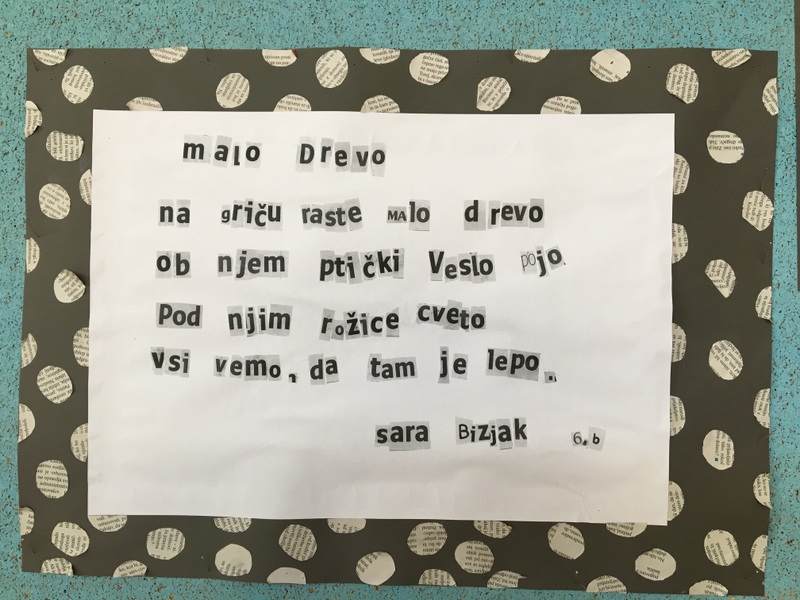 malo Drevo
na griču raste MAlo drevo
ob njem ptički Veslo pojo.
Pod njim rožice cveto
vsi vemo, da tam je lepo.
sara Bizjak 6.b